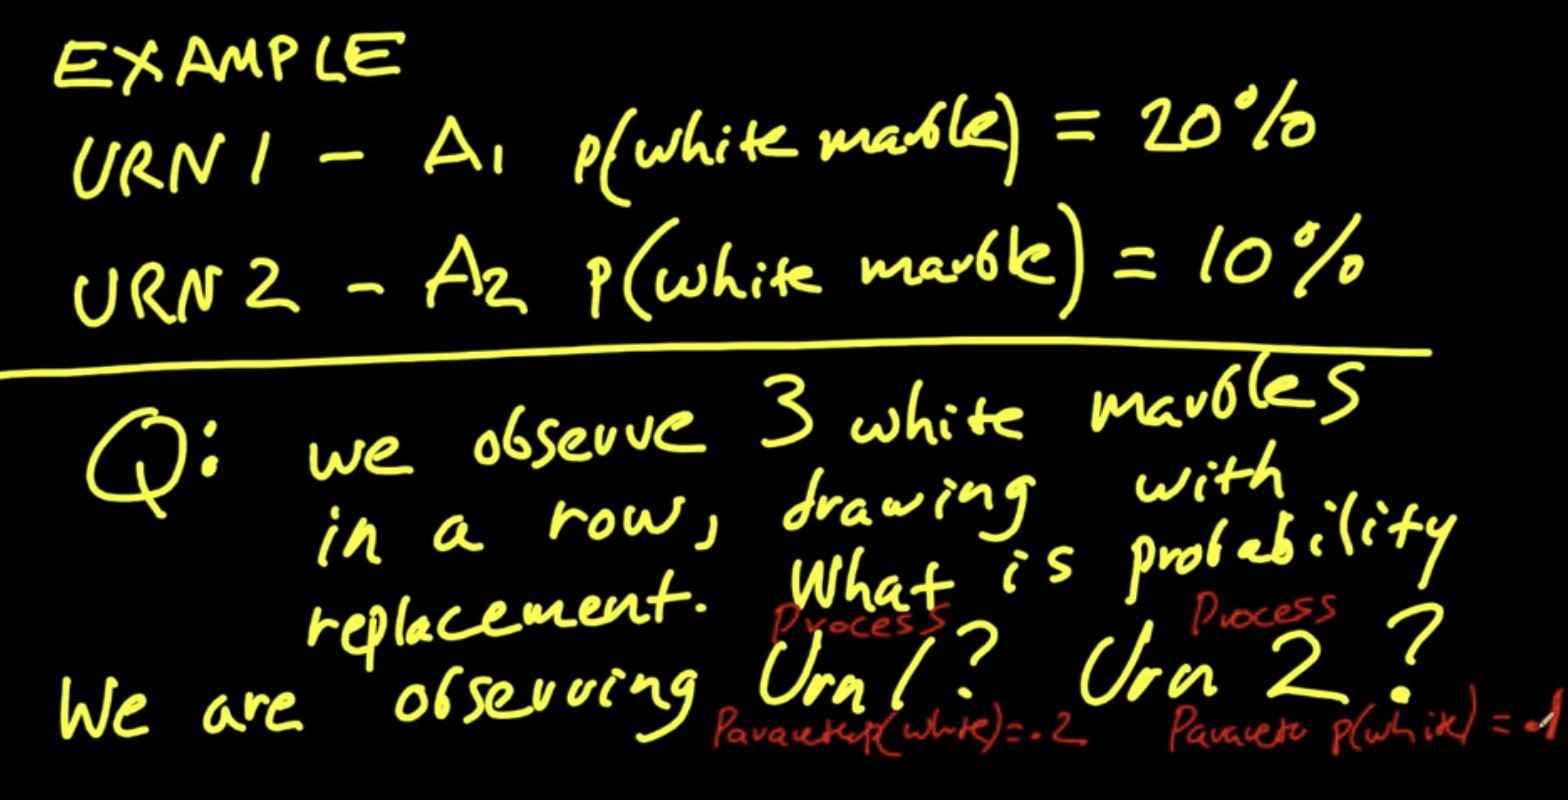 EXAMPLE
URN 1 - A1 p(white marble) = 20%
URN 2 - A2 p(white marble) = 10%
Q: we observe 3 white marbles
in a row, drawing with
replacement. What is probability
Process Process
We are observing Urn 1? Urn 2?
Parameter p(white) = .2 Parameter p(white) = .1